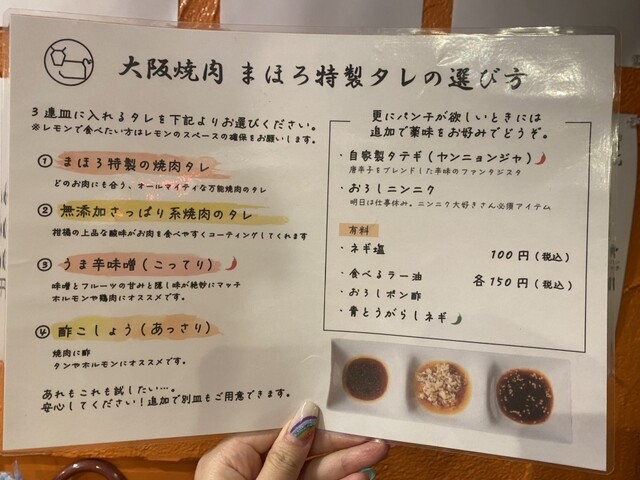 大阪焼肉 まほろ特製タレの選び方
3連皿に入れるタレを下記よりお選びください。
※レモンで食べたい方はレモンのスペースの確保をお願いします。
① まほろ特製の焼肉タレ
どのお肉にも合う、オールマイティな万能焼肉のタレ
② 無添加さっぱり系焼肉のタレ
柑橘の上品な酸味がお肉を食べやすくコーティングしてくれます
③ うま辛味噌(こってり)
味噌とフルーツの甘みと隠し味が絶妙にマッチ
ホルモンや鶏肉にオススメです。
④ 酢こしょう(あっさり)
焼肉に酢
タンやホルモンにオススメです。
あれもこれも試したい…。
安心してください!追加で別皿もご用意できます。
更にパンチが欲しいときには
追加で薬味をお好みでどうぞ。
・自家製タデギ(ヤンニョンジャ)
唐辛子をブレンドした辛味のファンタジスタ
・おろしニンニク
明日は仕事休み。ニンニク大好きさん必須アイテム
有料
・ネギ塩 100円(税込)
・食べるラー油 各150円(税込)
・おろしポン酢
・青とうがらしネギ